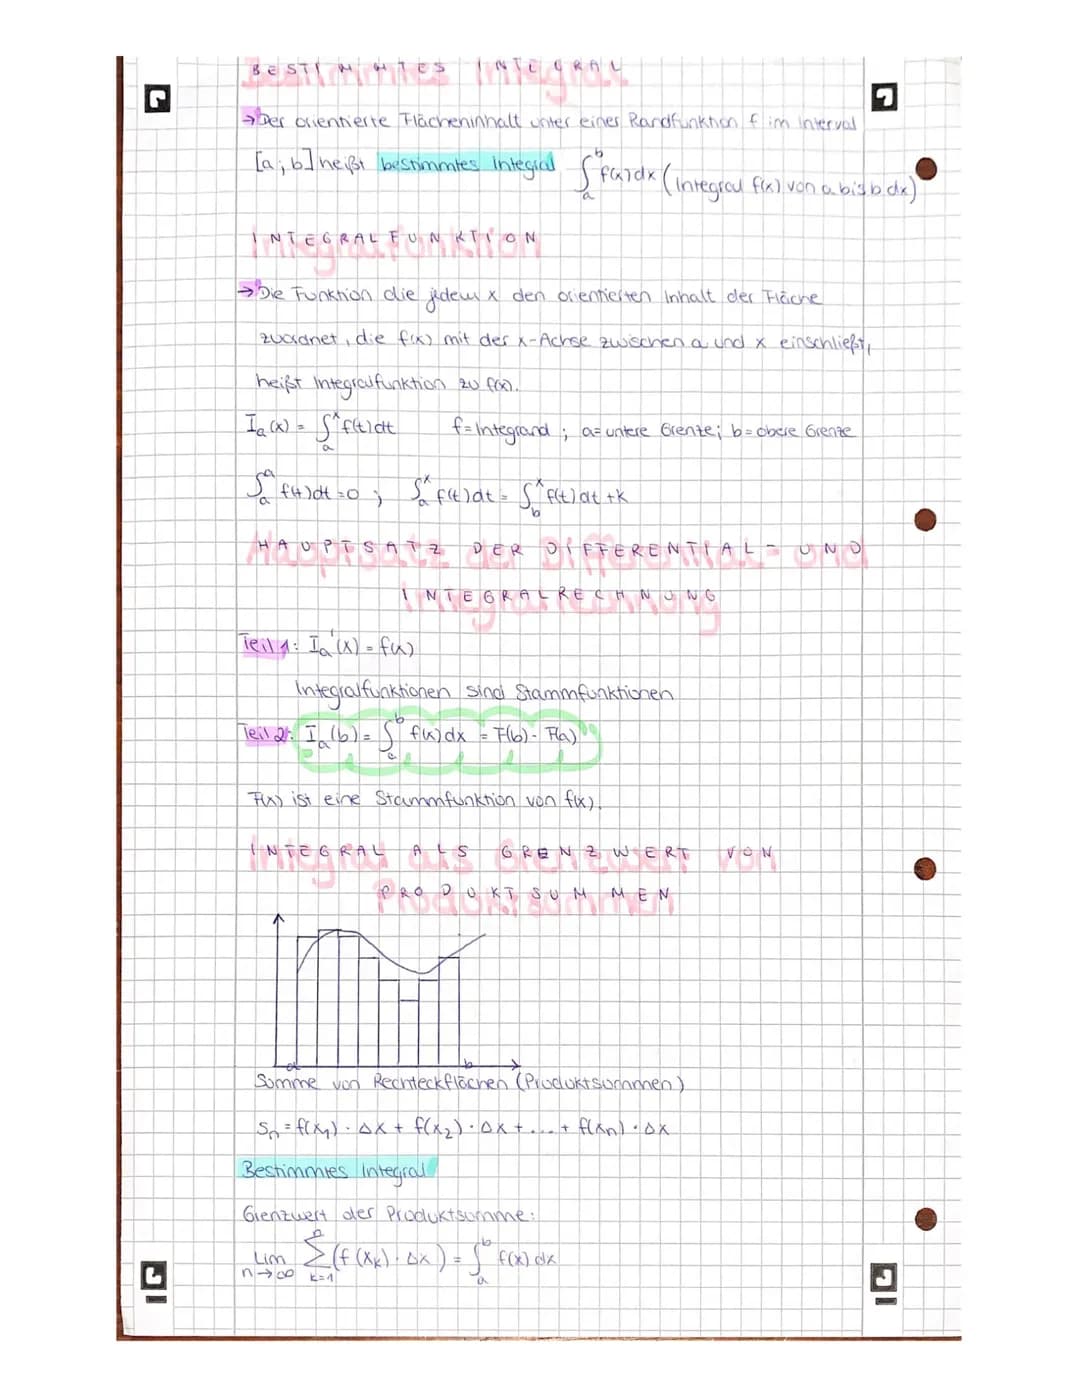 BESTIMMTES INTEGRAL
→ Der orientierte Flächeninhalt unter einer Randfunktion f im Interval
[a;b] heißt bestimmtes Integral ∫ₐᵇ f(x)dx (Integral f(x) von a bis b dx)
INTEGRALFUNKTION
→ Die Funktion die jedem x den orientierten Inhalt der Fläche
zuordnet, die f(x) mit der x-Achse zwischen a und x einschließt,
heißt Integralfunktion zu f(x).
Iₐ(x) = ∫ₐˣ f(t)dt f=Integrand ; a=untere Grenze; b=obere Grenze
∫ₐᵃ f(t)dt=0 ; ∫ₐˣ f(t)dt = ∫_b^x f(t)dt +k
HAUPTSATZ DER DIFFERENTIAL- UND
INTEGRALRECHNUNG
Teil 1: Iₐ'(x) = f(x)
Integralfunktionen sind Stammfunktionen
Teil 2: Iₐ(b) = ∫ₐᵇ f(x)dx = F(b) - F(a)
F(x) ist eine Stammfunktion von f(x).
INTEGRAL ALS GRENZWERT VON
PRODUKTSUMMEN
a b
Summe von Rechteckflächen (Produktsummen)
Sₙ = f(x₁) · Δx + f(x₂) · Δx + ... + f(xₙ) · Δx
Bestimmtes Integral
Grenzwert der Produktsumme:
Lim n→∞ ∑_{k=1}^n (f(xₖ) · Δx) = ∫ₐᵇ f(x)dx